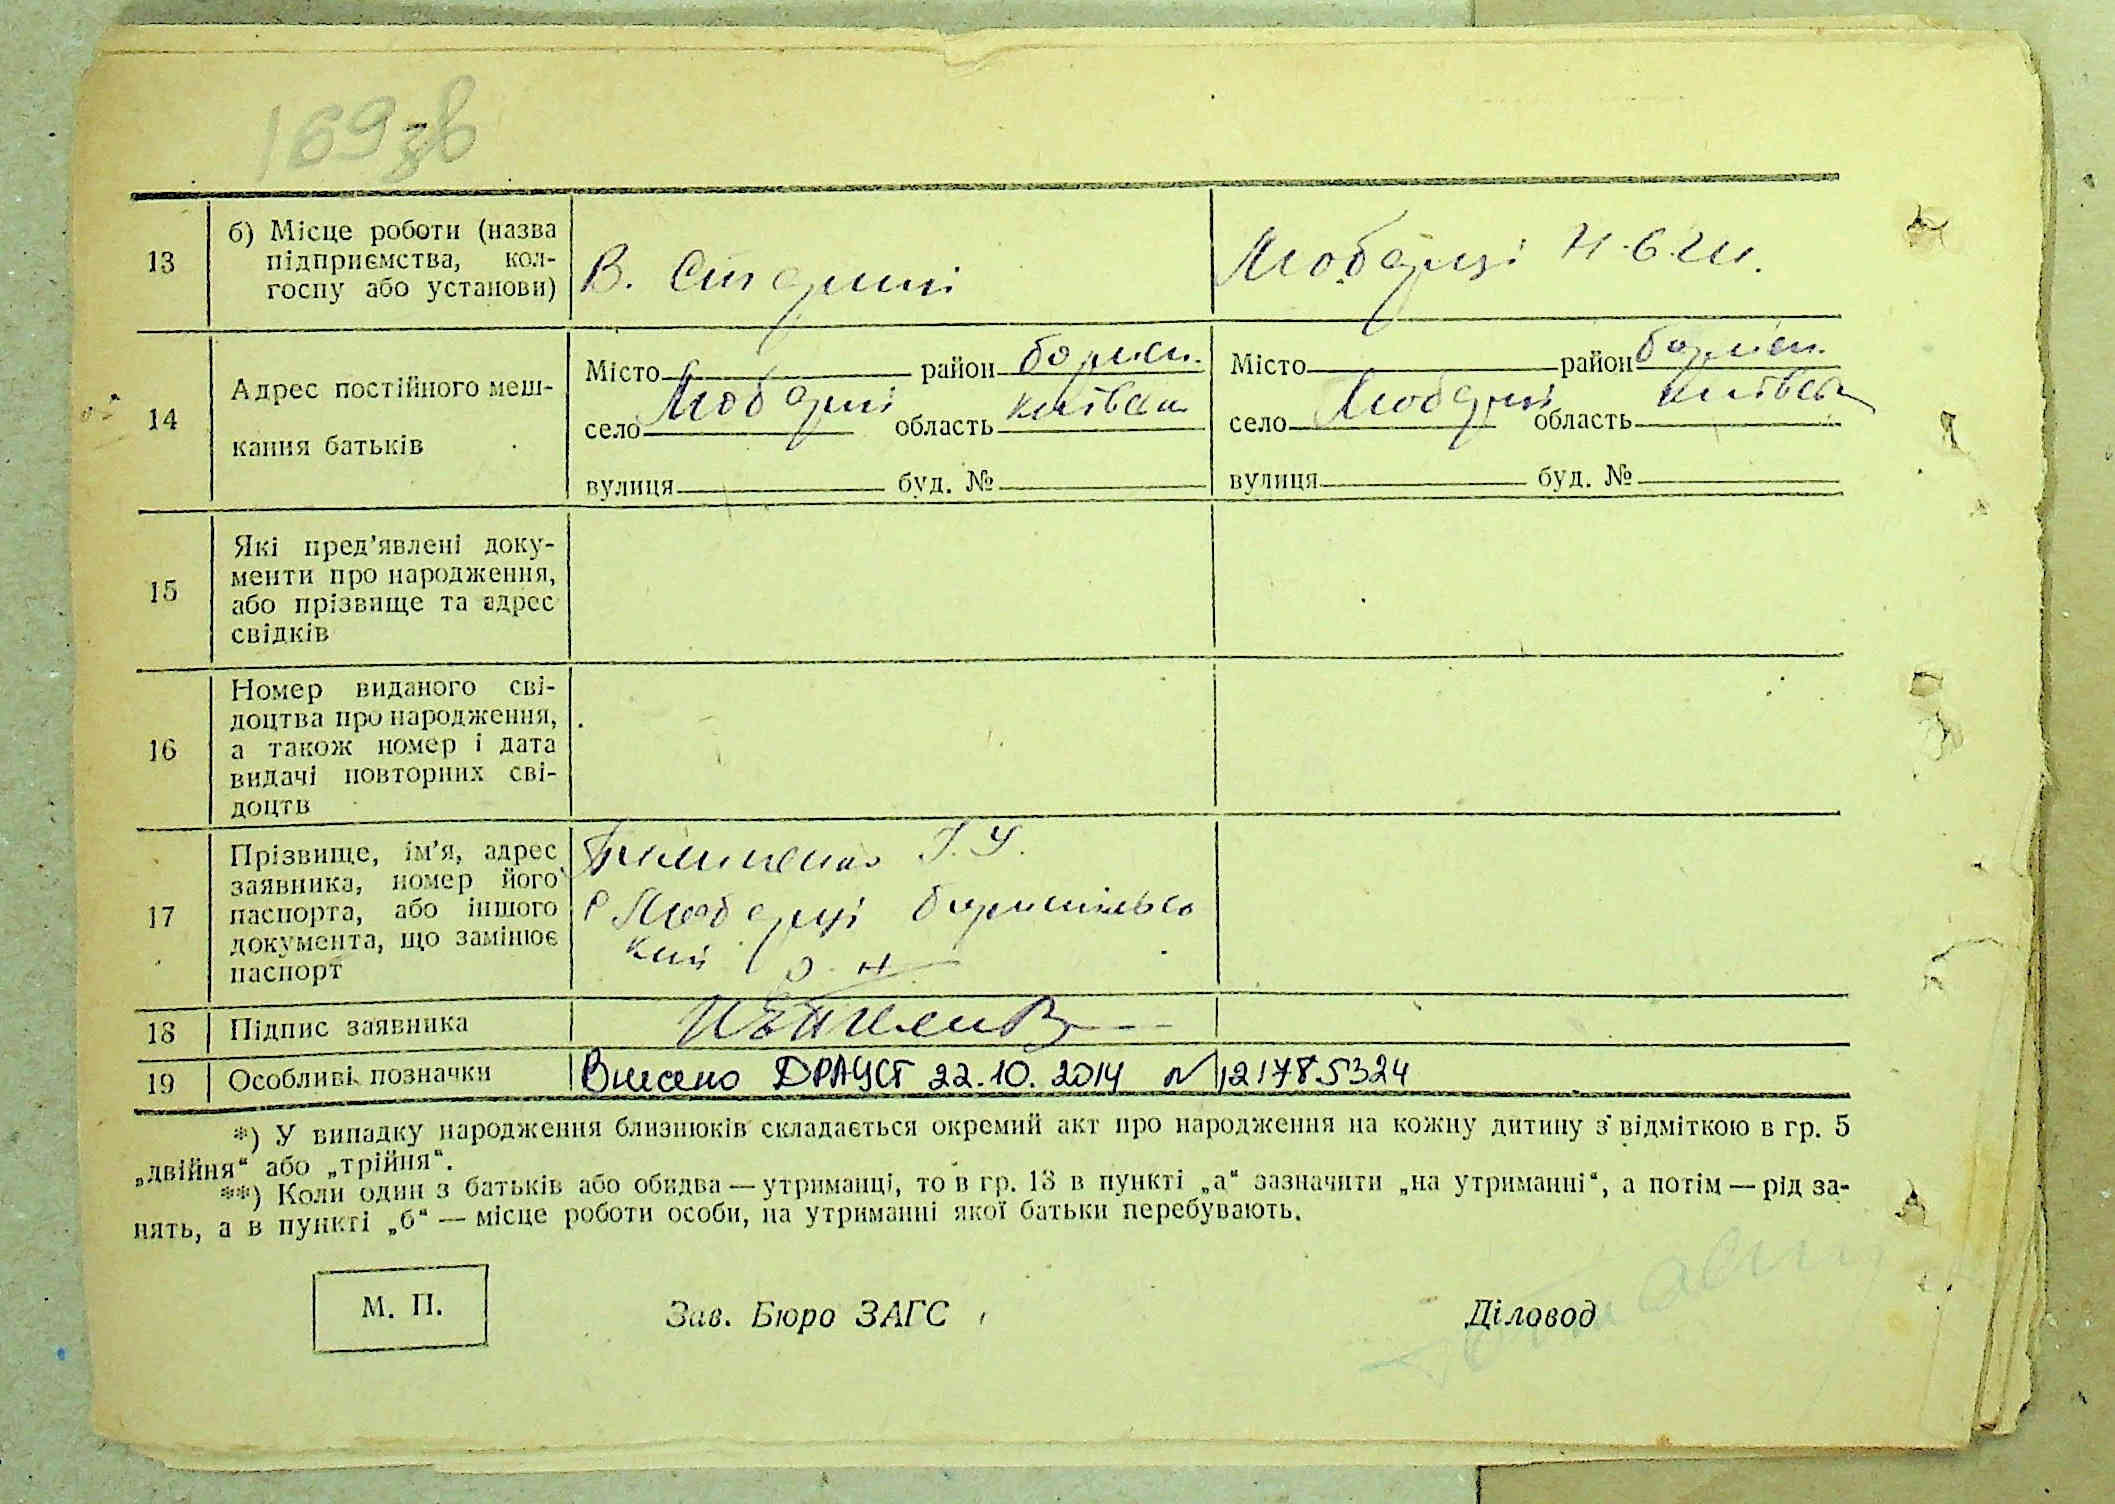 169 зв
13
б) Місце роботи (назва
підприємства, кол-
госпу або установи)
В.
Любарці Н-С. Ш.
14
Адрес постійного меш-
кання батьків
Місто район борисп.
село Любарці область київськ
вулиця буд. №
Місто район борисп.
село Любарці область київськ
вулиця буд. №
15
Які пред'явлені доку-
менти про народження,
або прізвище та адрес
свідків
16
Номер виданого сві-
доцтва про народження,
а також номер і дата
видачі повторних сві-
доцтв
17
Прізвище, ім'я, адрес
заявника, номер його
паспорта, або іншого
документа, що замінює
паспорт
с Любарці бориспільсь
кий р-н
18
Підпис заявника
19
Особливі позначки
Внесено ДРАЦСГ 22.10.2014 № 121785324
*) У випадку народження близнюків складається окремий акт про народження на кожну дитину з відміткою в гр. 5
„двійня“ або „трійня“.
**) Коли один з батьків або обидва — утриманці, то в гр. 13 в пункті „а“ зазначити „на утриманні“, а потім — рід за-
нять, а в пункті „б“ — місце роботи особи, на утриманні якої батьки перебувають.
М. П.
Зав. Бюро ЗАГС
Діловод